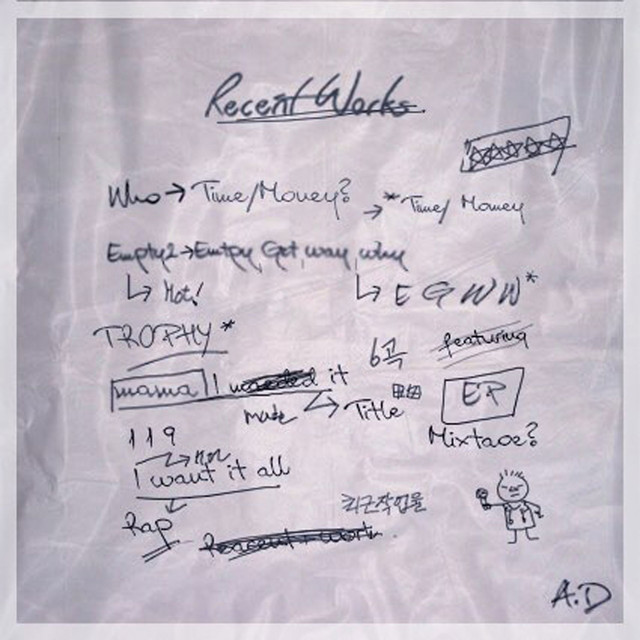 Recent Works.
Who → Time/Money? → * Time/ Money
Empty2 → Emtpy, Get, way, why
↳ Hot! ↳ E G W W *
TROPHY *
6곡 featuring
mama I wanted it
made → Title EP
119 Mixtape?
→ Hot
I want it all
최근작업물
Rap
A.D